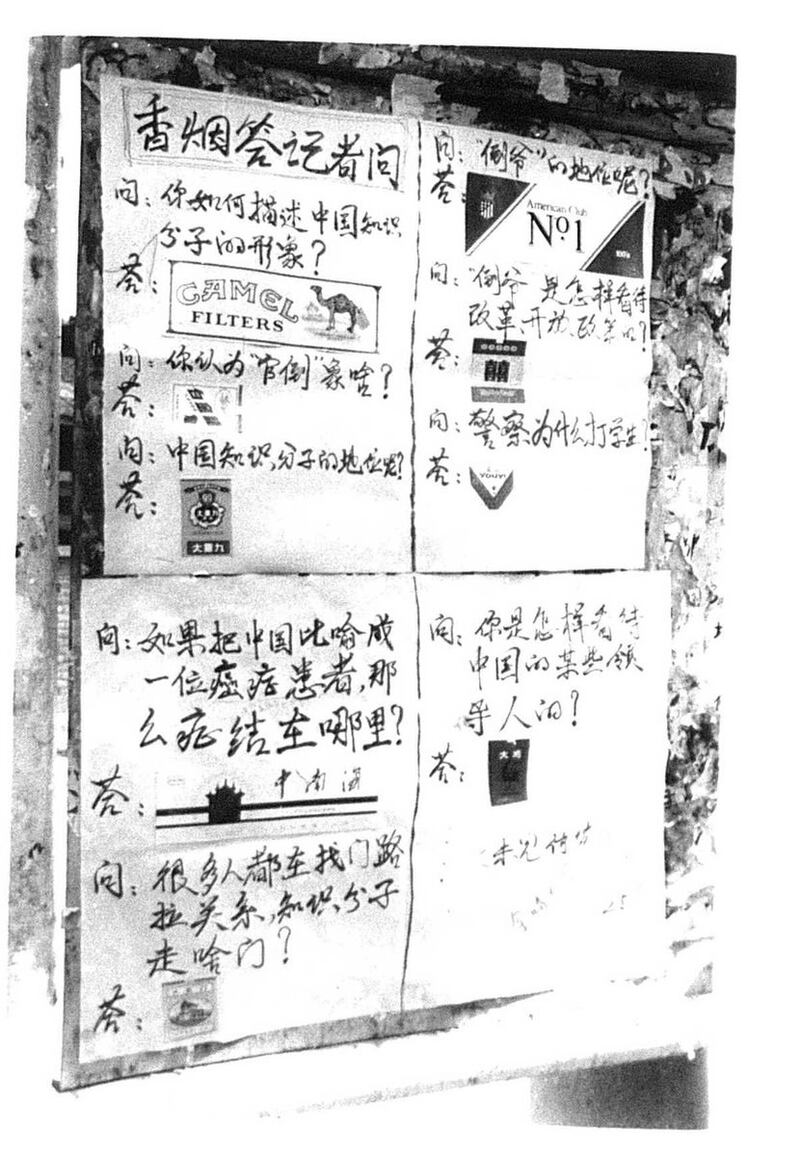 香烟答记者问
问：你如何描述中国知识
分子的形象？
答：
CAMEL
FILTERS
问：你认为"官倒"象啥？
答：
问：中国知识分子的地位呢？
答：
大重九
问："倒爷"的地位呢？
答：
American Club
No1
100's
问："倒爷"是怎样看待
改革、开放、改革的？
答：
囍
问：警察为什么打学生？
答：
YOUYI
问：如果把中国比喻成
一位癌症患者，那
么症结在哪里？
答：
中南海
问：很多人都在找门路
拉关系，知识分子
走啥门？
答：
问：你是怎样看待
中国的某些领
导人的？
答：